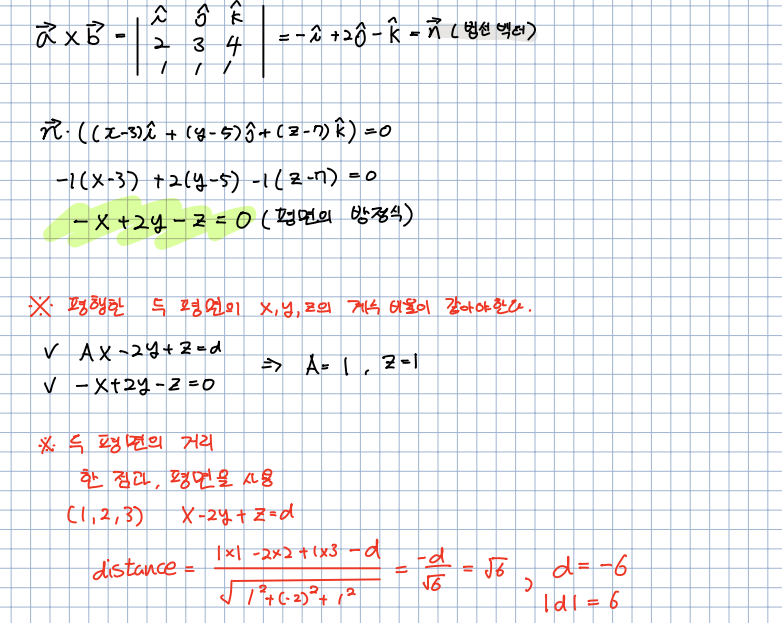 a⃗ × b⃗ = | î ĵ k̂ | = -î + 2ĵ - k̂ = n⃗ (법선 벡터)
2 3 4
1 1 1
n⃗ · ((x-3)î + (y-5)ĵ + (z-7)k̂) = 0
-1(x-3) + 2(y-5) -1(z-7) = 0
-x + 2y - z = 0 (평면의 방정식)
※ 평행한 두 평면의 x, y, z의 계수 비율이 같아야한다.
✓ Ax - 2y + z = d
⇒ A = 1, z = 1
✓ -x + 2y - z = 0
※ 두 평면의 거리
한 점과, 평면을 사용
(1, 2, 3) x - 2y + z = d
distance = (1×1 - 2×2 + 1×3 - d) / √(1² + (-2)² + 1²) = -d/√6 = √6, d = -6
|d| = 6